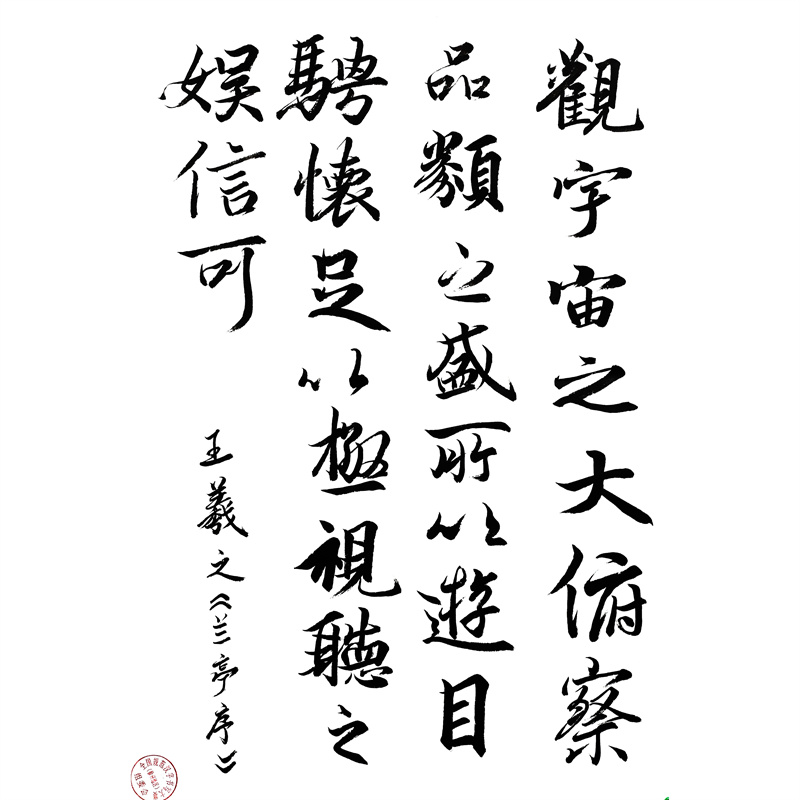 觀宇宙之大俯察
品類之盛所以遊目
騁懷足以極視聽之
娱信可
王羲之《兰亭序》